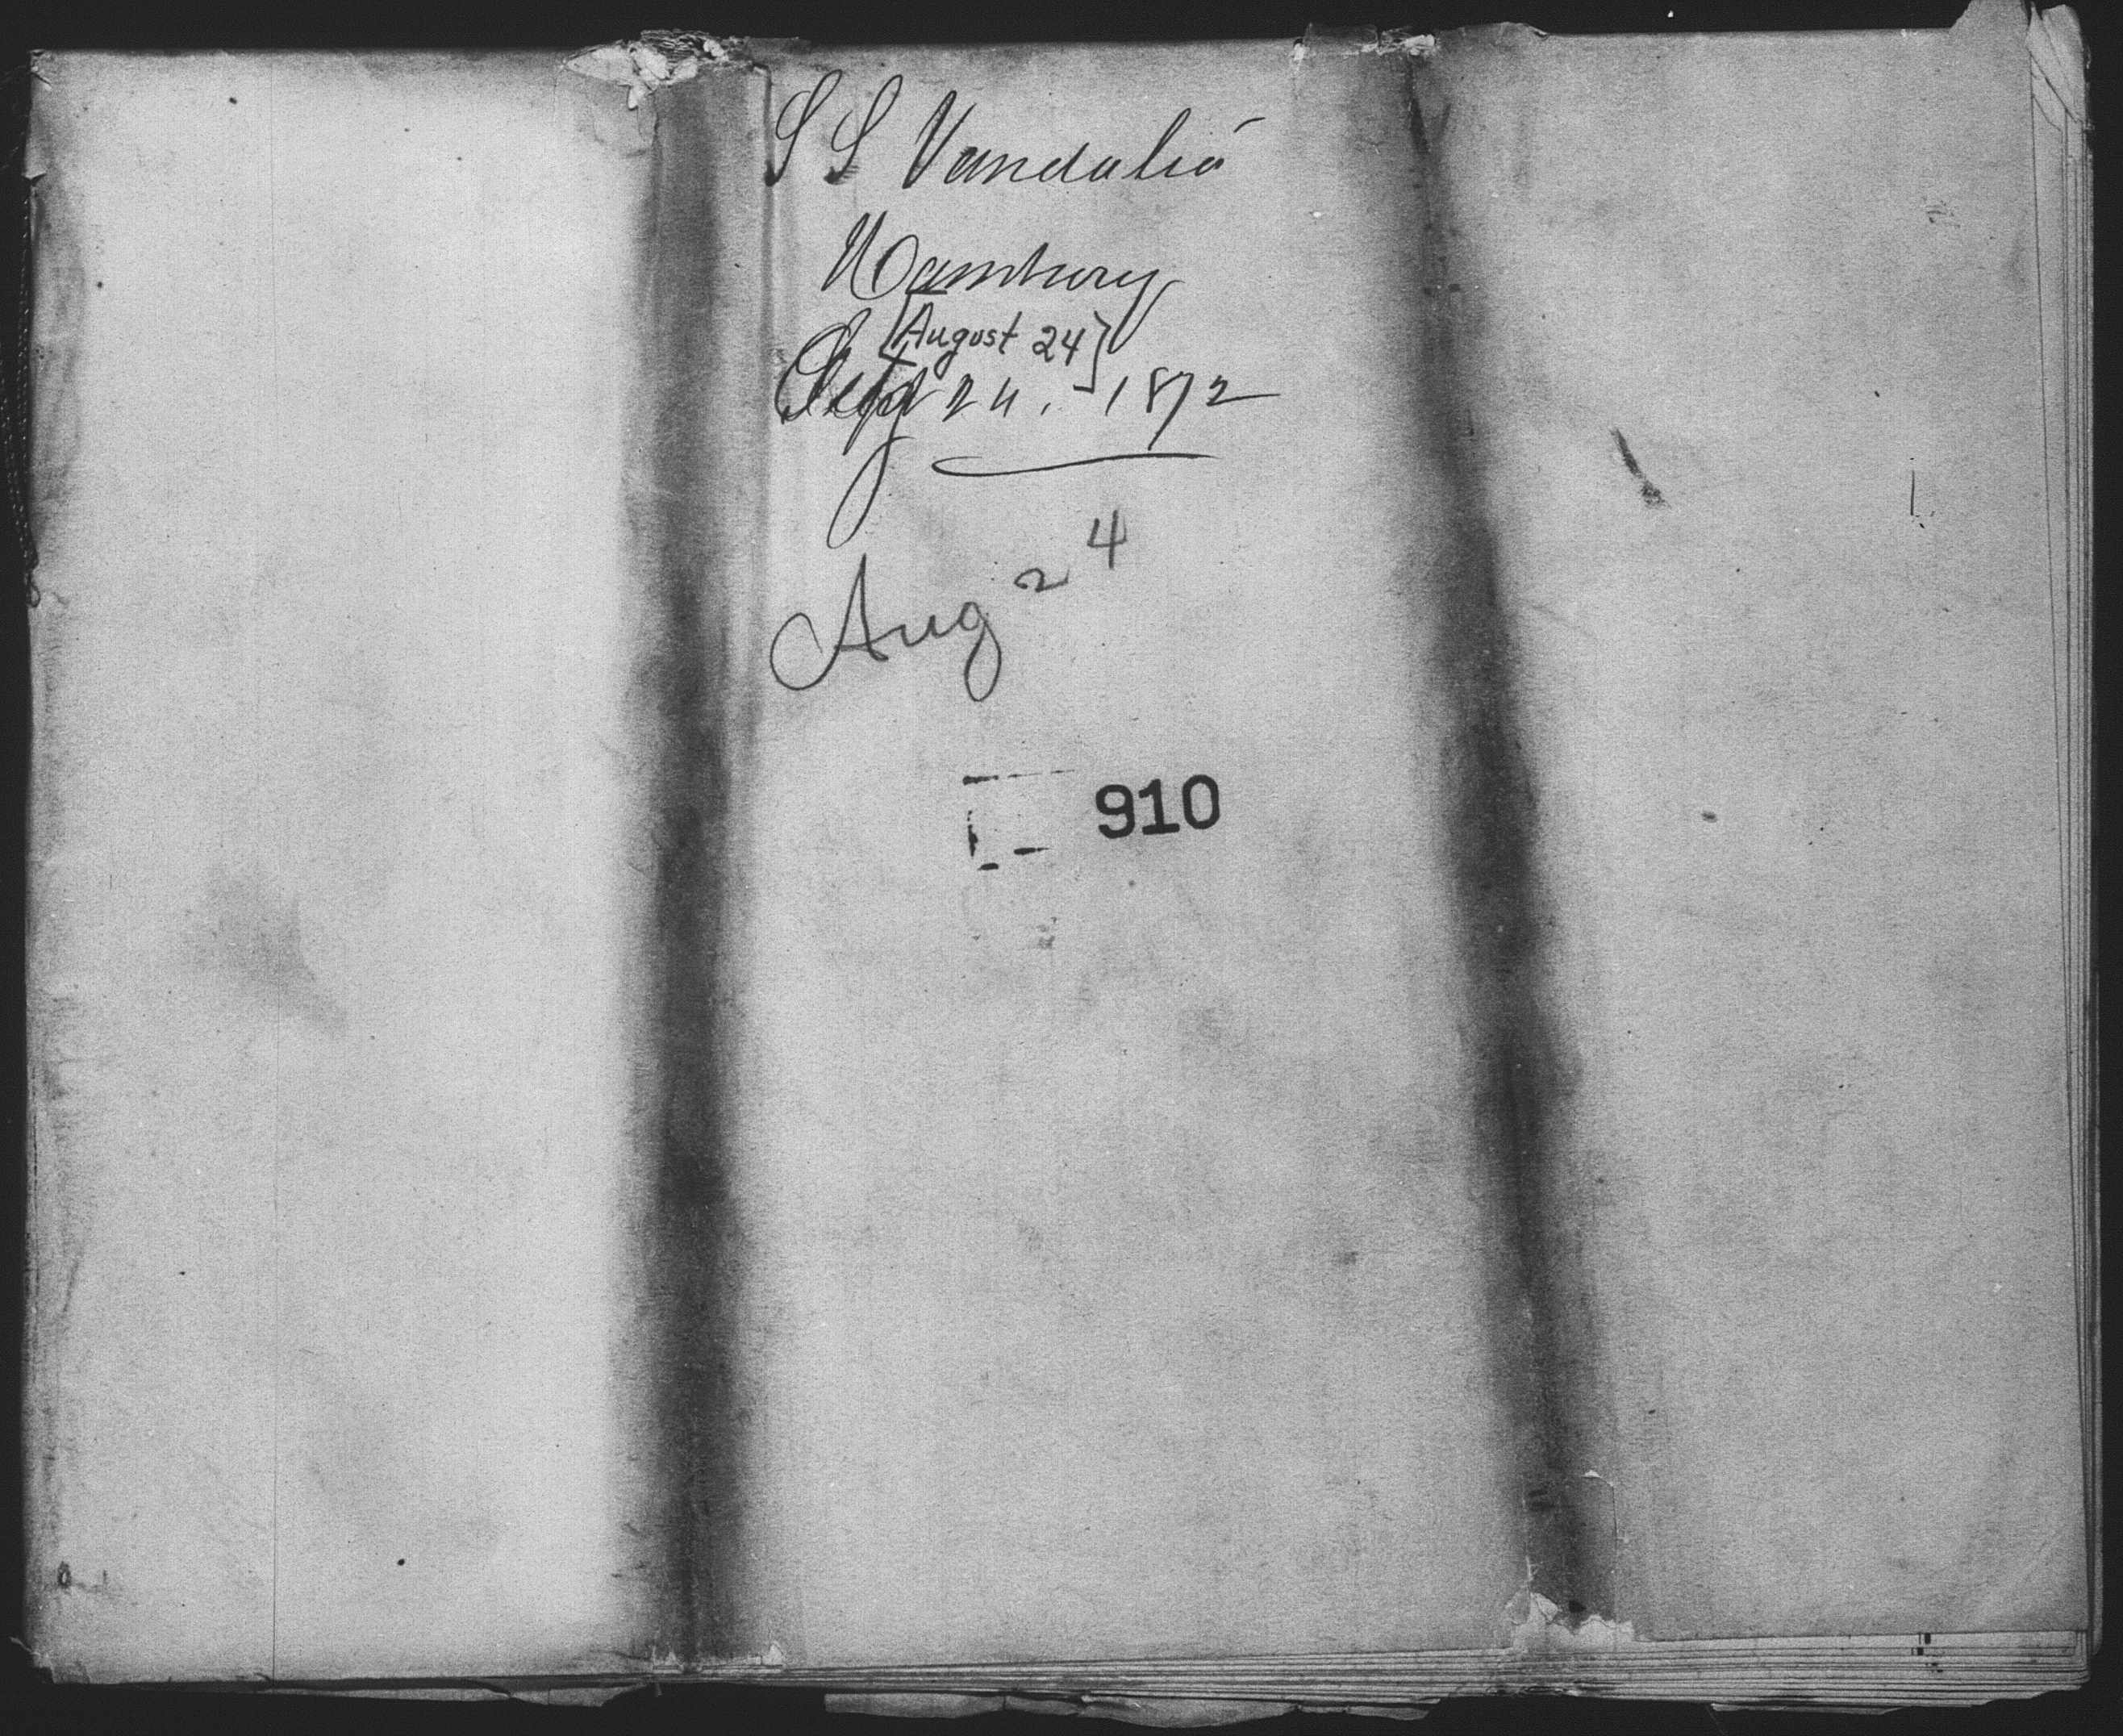 S S Vandalia
Hamburg
[August 24]
Aug 24. 1872
Aug 24
910